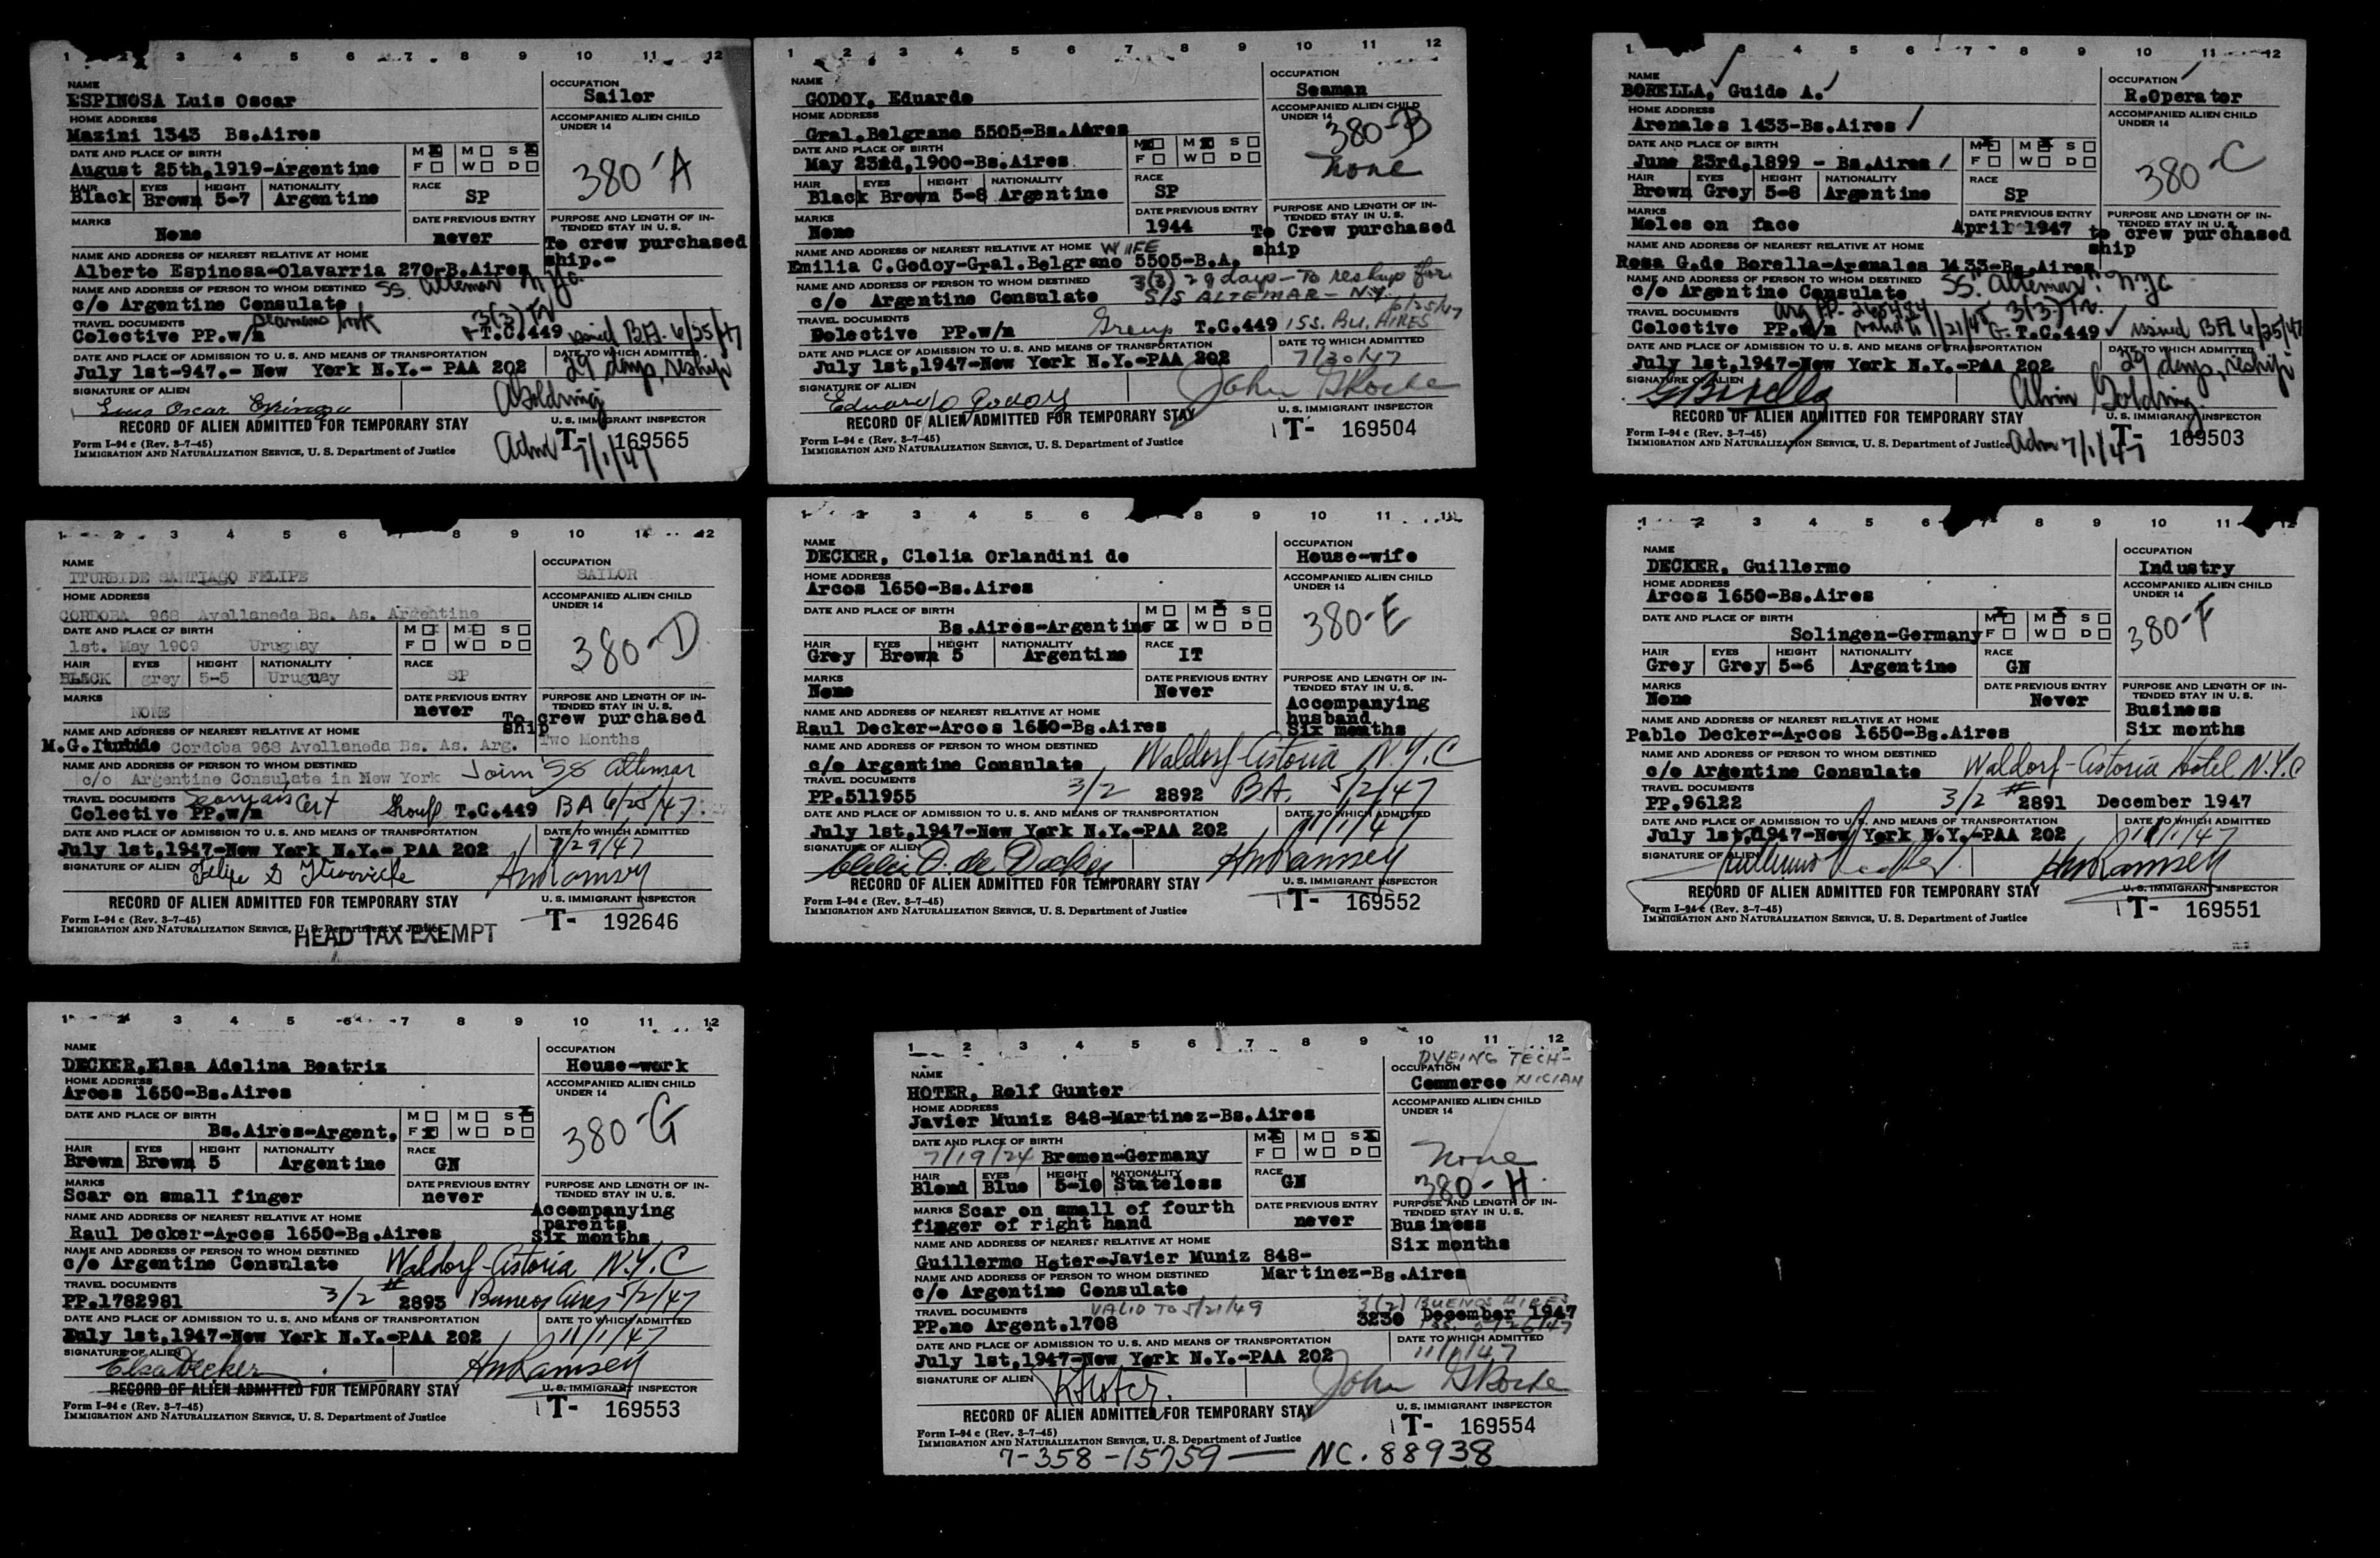 1 2 3 4 5 6 7 8 9 10 11 12
NAME
ESPINOSA Luis Oscar
OCCUPATION
Sailor
HOME ADDRESS
Mazini 1343 Bs.Aires
ACCOMPANIED ALIEN CHILD UNDER 14
380-A
DATE AND PLACE OF BIRTH
August 25th,1919-Argentine
M F M S W D
HAIR EYES HEIGHT NATIONALITY RACE
Black Brown 5-7 Argentine SP
MARKS
None
DATE PREVIOUS ENTRY
never
PURPOSE AND LENGTH OF INTENDED STAY IN U. S.
To crew purchased
ship.-
NAME AND ADDRESS OF NEAREST RELATIVE AT HOME
Alberto Espinosa-Olavarria 270-B.Aires
NAME AND ADDRESS OF PERSON TO WHOM DESTINED
SS. Altemar N.Y.C.
c/o Argentine Consulate
TRAVEL DOCUMENTS
seamans book 3(3) TR
Colective PP.w/n T.C.449 issued BA. 6/25/47
DATE AND PLACE OF ADMISSION TO U. S. AND MEANS OF TRANSPORTATION
July 1st-947.- New York N.Y.- PAA 202
DATE TO WHICH ADMITTED
29 days, reship
SIGNATURE OF ALIEN
Luis Oscar Espinosa
A Golding
RECORD OF ALIEN ADMITTED FOR TEMPORARY STAY
U. S. IMMIGRANT INSPECTOR
Form I-94 c (Rev. 3-7-45)
IMMIGRATION AND NATURALIZATION SERVICE, U. S. Department of Justice
T- 169565
Adm 7/1/47
1 2 3 4 5 6 7 8 9 10 11 12
NAME
GODOY, Eduardo
OCCUPATION
Seaman
HOME ADDRESS
Gral.Belgrano 5505-Bs.Aires
ACCOMPANIED ALIEN CHILD UNDER 14
380-B
None
DATE AND PLACE OF BIRTH
May 23rd,1900-Bs.Aires
M F M S W D
HAIR EYES HEIGHT NATIONALITY RACE
Black Brown 5-8 Argentine SP
MARKS
None
DATE PREVIOUS ENTRY
1944
PURPOSE AND LENGTH OF INTENDED STAY IN U. S.
To Crew purchased
ship
NAME AND ADDRESS OF NEAREST RELATIVE AT HOME WIFE
Emilia C.Godoy-Gral.Belgrano 5505-B.A.
NAME AND ADDRESS OF PERSON TO WHOM DESTINED
3(3) 29 days - To reship for
c/o Argentine Consulate S/S ALTEMAR - N.Y.
TRAVEL DOCUMENTS
6/25/47
Colective PP.w/n Group T.C.449 ISS. BU. AIRES
DATE AND PLACE OF ADMISSION TO U. S. AND MEANS OF TRANSPORTATION
July 1st,1947-New York N.Y.-PAA 202
DATE TO WHICH ADMITTED
7/30/47
SIGNATURE OF ALIEN
Eduardo Godoy
RECORD OF ALIEN ADMITTED FOR TEMPORARY STAY
U. S. IMMIGRANT INSPECTOR
Form I-94 c (Rev. 3-7-45)
IMMIGRATION AND NATURALIZATION SERVICE, U. S. Department of Justice
T- 169504
1 3 4 5 6 7 8 9 10 11 12
NAME
BORELLA, Guido A.
OCCUPATION
R.Operator
HOME ADDRESS
Arenales 1433-Bs.Aires
ACCOMPANIED ALIEN CHILD UNDER 14
380-C
DATE AND PLACE OF BIRTH
June 23rd,1899 - Bs.Aires
M F M S W D
HAIR EYES HEIGHT NATIONALITY RACE
Brown Grey 5-8 Argentine SP
MARKS
Moles on face
DATE PREVIOUS ENTRY
April 1947
PURPOSE AND LENGTH OF INTENDED STAY IN U. S.
to crew purchased
ship
NAME AND ADDRESS OF NEAREST RELATIVE AT HOME
Rosa G.de Borella-Arenales 1433-Bs.Aires
NAME AND ADDRESS OF PERSON TO WHOM DESTINED
c/o Argentine Consulate SS. "Altemar" NYC
TRAVEL DOCUMENTS
Colective PP.w/n G.T.C.449 issued BA 6/25/47
DATE AND PLACE OF ADMISSION TO U. S. AND MEANS OF TRANSPORTATION
July 1st,1947-New York N.Y.-PAA 202
DATE TO WHICH ADMITTED
29 days, reship
SIGNATURE OF ALIEN
G Borella
Alvin Golding
RECORD OF ALIEN ADMITTED FOR TEMPORARY STAY
U. S. IMMIGRANT INSPECTOR
Form I-94 c (Rev. 3-7-45)
IMMIGRATION AND NATURALIZATION SERVICE, U. S. Department of Justice
Adm 7/1/47
T- 169503
1 2 3 4 5 6 8 9 10 11 12
NAME
ITURBIDE SANTIAGO FELIPE
OCCUPATION
SAILOR
HOME ADDRESS
CORDOBA 968 Avellaneda Bs. As. Argentine
ACCOMPANIED ALIEN CHILD UNDER 14
380-D
DATE AND PLACE OF BIRTH
1st. May 1909 Uruguay
M F M S W D
HAIR EYES HEIGHT NATIONALITY RACE
BLACK grey 5-5 Uruguay SP
MARKS
NONE
DATE PREVIOUS ENTRY
never
PURPOSE AND LENGTH OF INTENDED STAY IN U. S.
To crew purchased
ship
Two Months
NAME AND ADDRESS OF NEAREST RELATIVE AT HOME
M.G.Iturbide Cordoba 968 Avellaneda Bs. As. Arg.
NAME AND ADDRESS OF PERSON TO WHOM DESTINED
c/o Argentine Consulate in New York Join SS Altemar
TRAVEL DOCUMENTS
Colective PP.w/n Cert Group T.C.449 BA 6/25/47
DATE AND PLACE OF ADMISSION TO U. S. AND MEANS OF TRANSPORTATION
July 1st,1947-New York N.Y.- PAA 202
DATE TO WHICH ADMITTED
7/29/47
SIGNATURE OF ALIEN
HM Ramsey
RECORD OF ALIEN ADMITTED FOR TEMPORARY STAY
U. S. IMMIGRANT INSPECTOR
Form I-94 c (Rev. 3-7-45)
IMMIGRATION AND NATURALIZATION SERVICE, U. S. Department of Justice
HEAD TAX EXEMPT
T- 192646
1 2 3 4 5 6 8 9 10 11 12
NAME
DECKER, Clelia Orlandini de
OCCUPATION
House-wife
HOME ADDRESS
Arcos 1650-Bs.Aires
ACCOMPANIED ALIEN CHILD UNDER 14
380-E
DATE AND PLACE OF BIRTH
Bs.Aires-Argentine
M F M S W D
HAIR EYES HEIGHT NATIONALITY RACE
Grey Brown 5 Argentine IT
MARKS
None
DATE PREVIOUS ENTRY
Never
PURPOSE AND LENGTH OF INTENDED STAY IN U. S.
Accompanying
husband
Six months
NAME AND ADDRESS OF NEAREST RELATIVE AT HOME
Raul Decker-Arcos 1650-Bs.Aires
NAME AND ADDRESS OF PERSON TO WHOM DESTINED
c/o Argentine Consulate Waldorf-Astoria N.Y.C
TRAVEL DOCUMENTS
PP.511955 3/2 2892 BA. 5/2/47
DATE AND PLACE OF ADMISSION TO U. S. AND MEANS OF TRANSPORTATION
July 1st,1947-New York N.Y.-PAA 202
DATE TO WHICH ADMITTED
11/1/47
SIGNATURE OF ALIEN
Clelia O. de Decker
HM Ramsey
RECORD OF ALIEN ADMITTED FOR TEMPORARY STAY
U. S. IMMIGRANT INSPECTOR
Form I-94 c (Rev. 3-7-45)
IMMIGRATION AND NATURALIZATION SERVICE, U. S. Department of Justice
T- 169552
1 2 3 4 5 6 7 8 9 10 11 12
NAME
DECKER, Guillermo
OCCUPATION
Industry
HOME ADDRESS
Arcos 1650-Bs.Aires
ACCOMPANIED ALIEN CHILD UNDER 14
380-F
DATE AND PLACE OF BIRTH
Solingen-Germany
M F M S W D
HAIR EYES HEIGHT NATIONALITY RACE
Grey Grey 5-6 Argentine GN
MARKS
None
DATE PREVIOUS ENTRY
Never
PURPOSE AND LENGTH OF INTENDED STAY IN U. S.
Business
Six months
NAME AND ADDRESS OF NEAREST RELATIVE AT HOME
Pablo Decker-Arcos 1650-Bs.Aires
NAME AND ADDRESS OF PERSON TO WHOM DESTINED
c/o Argentine Consulate Waldorf-Astoria Hotel N.Y.C
TRAVEL DOCUMENTS
PP.96122 3/2 #2891 December 1947
DATE AND PLACE OF ADMISSION TO U. S. AND MEANS OF TRANSPORTATION
July 1st,1947-New York N.Y.-PAA 202
DATE TO WHICH ADMITTED
11/1/47
SIGNATURE OF ALIEN
Guillermo Decker
HM Ramsey
RECORD OF ALIEN ADMITTED FOR TEMPORARY STAY
U. S. IMMIGRANT INSPECTOR
Form I-94 c (Rev. 3-7-45)
IMMIGRATION AND NATURALIZATION SERVICE, U. S. Department of Justice
T- 169551
1 2 3 4 5 6 7 8 9 10 11 12
NAME
DECKER,Elsa Adelina Beatriz
OCCUPATION
House-work
HOME ADDRESS
Arcos 1650-Bs.Aires
ACCOMPANIED ALIEN CHILD UNDER 14
380-G
DATE AND PLACE OF BIRTH
Bs.Aires-Argent.
M F M S W D
HAIR EYES HEIGHT NATIONALITY RACE
Brown Brown 5 Argentine GN
MARKS
Scar on small finger
DATE PREVIOUS ENTRY
never
PURPOSE AND LENGTH OF INTENDED STAY IN U. S.
Accompanying
parents
Six months
NAME AND ADDRESS OF NEAREST RELATIVE AT HOME
Raul Decker-Arcos 1650-Bs.Aires
NAME AND ADDRESS OF PERSON TO WHOM DESTINED
c/o Argentine Consulate Waldorf-Astoria N.Y.C
TRAVEL DOCUMENTS
PP.1782981 3/2 #2893 Buenos Aires 5/2/47
DATE AND PLACE OF ADMISSION TO U. S. AND MEANS OF TRANSPORTATION
July 1st,1947-New York N.Y.-PAA 202
DATE TO WHICH ADMITTED
11/1/47
SIGNATURE OF ALIEN
Elsa Decker
HM Ramsey
RECORD OF ALIEN ADMITTED FOR TEMPORARY STAY
U. S. IMMIGRANT INSPECTOR
Form I-94 c (Rev. 3-7-45)
IMMIGRATION AND NATURALIZATION SERVICE, U. S. Department of Justice
T- 169553
1 2 3 4 5 6 7 8 9 10 11 12
NAME
HOTER, Rolf Gunter
DYEING TECHNICIAN
OCCUPATION
Commerce
HOME ADDRESS
Javier Muniz 848-Martinez-Bs.Aires
ACCOMPANIED ALIEN CHILD UNDER 14
None
380-H
DATE AND PLACE OF BIRTH
7/19/24 Bremen-Germany
M F M S W D
HAIR EYES HEIGHT NATIONALITY RACE
Blond Blue 5-10 Stateless GN
MARKS Scar on small of fourth
finger of right hand
DATE PREVIOUS ENTRY
never
PURPOSE AND LENGTH OF INTENDED STAY IN U. S.
Business
Six months
NAME AND ADDRESS OF NEAREST RELATIVE AT HOME
Guillermo Hoter-Javier Muniz 848-
Martinez-Bs.Aires
NAME AND ADDRESS OF PERSON TO WHOM DESTINED
c/o Argentine Consulate
TRAVEL DOCUMENTS VALID TO 5/21/49 3(2) BUENOS AIRES
PP.no Argent.1708 3230 December 1947
DATE AND PLACE OF ADMISSION TO U. S. AND MEANS OF TRANSPORTATION
July 1st,1947-New York N.Y.-PAA 202
DATE TO WHICH ADMITTED
11/1/47
SIGNATURE OF ALIEN
R Hoter.
RECORD OF ALIEN ADMITTED FOR TEMPORARY STAY
U. S. IMMIGRANT INSPECTOR
Form I-94 c (Rev. 3-7-45)
IMMIGRATION AND NATURALIZATION SERVICE, U. S. Department of Justice
T- 169554
7-358-15759 — NC. 88938